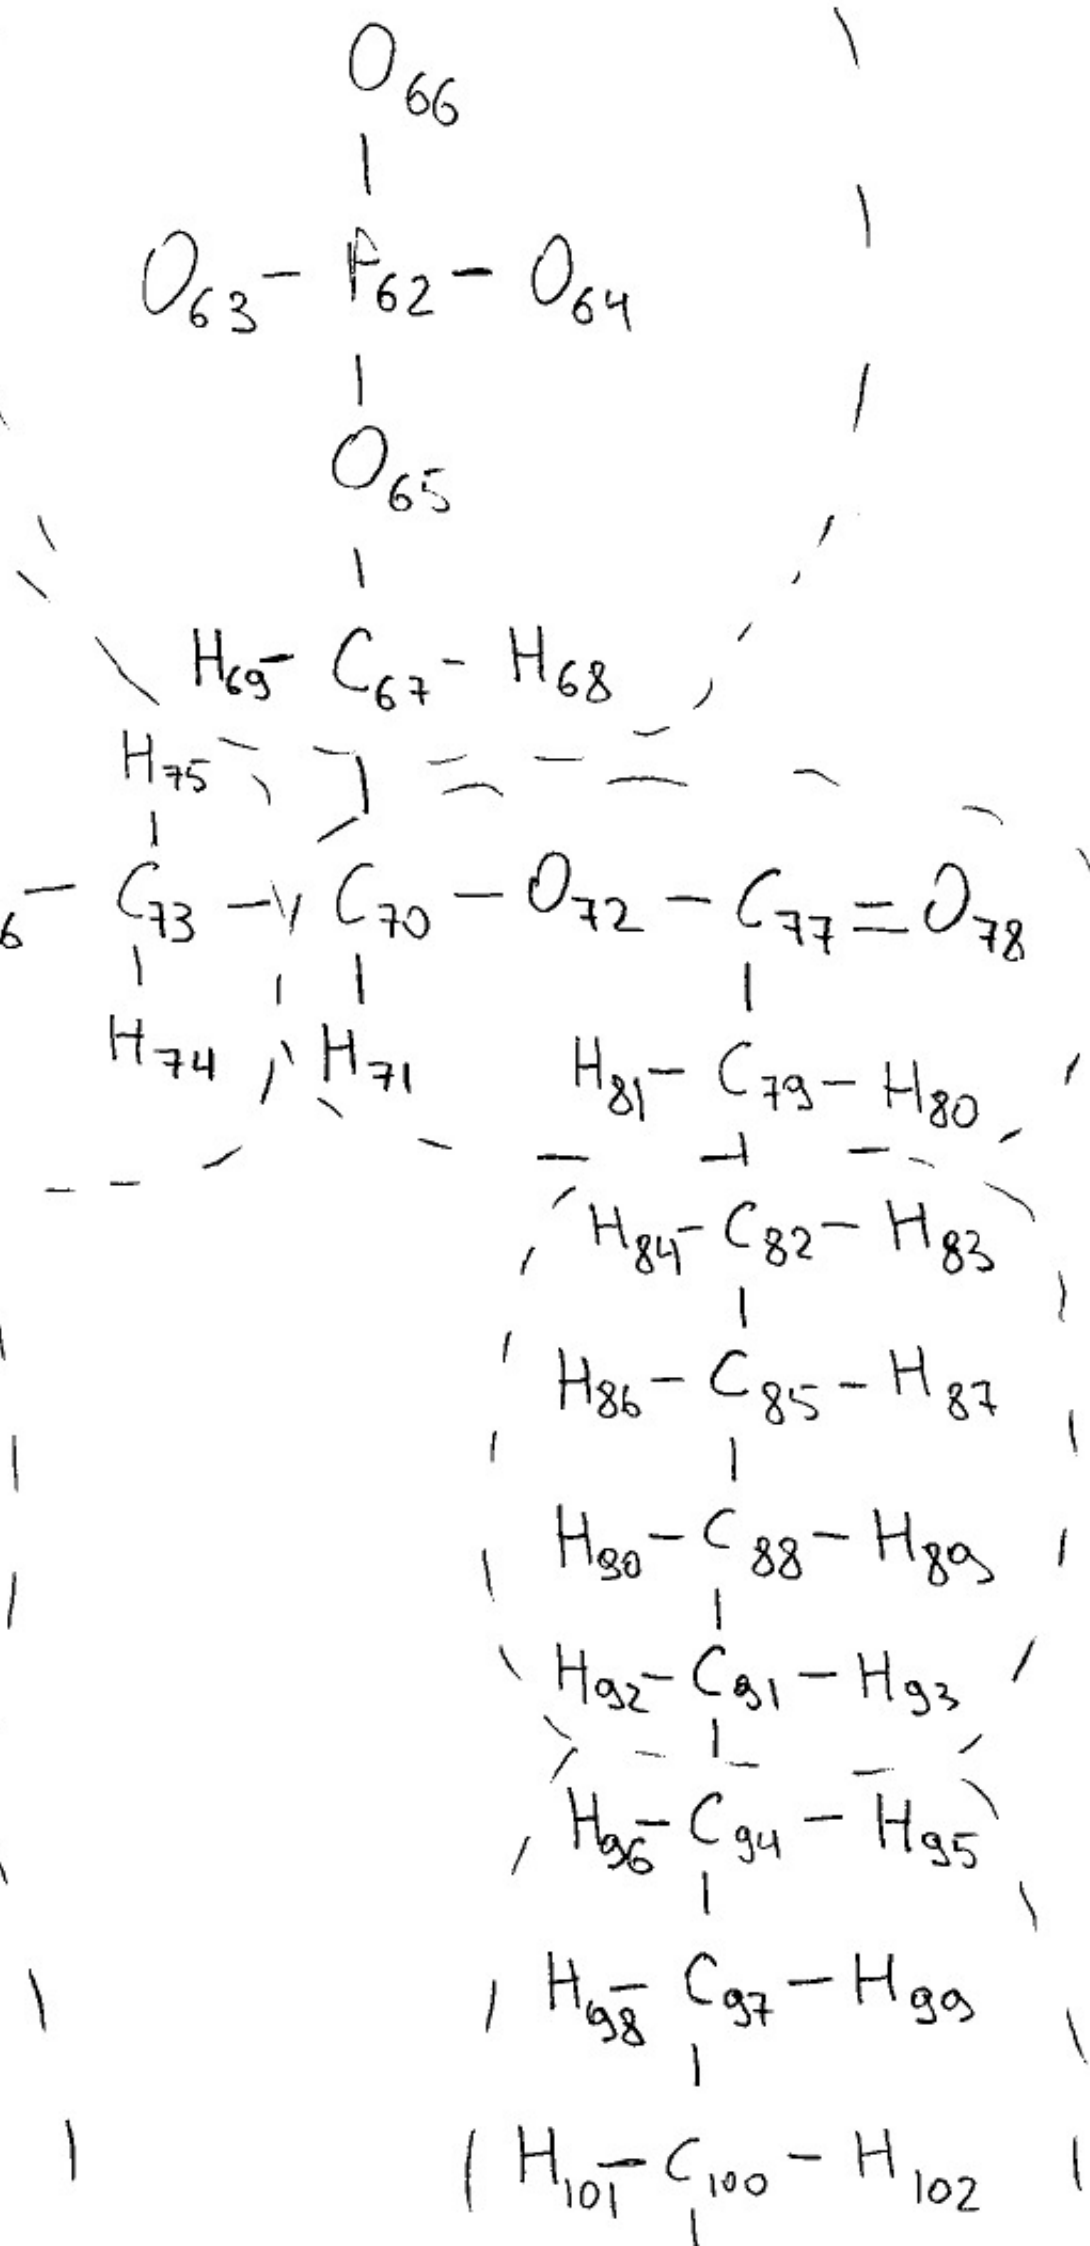 O66
O63 - P62 - O64
O65
H69 - C67 - H68
H75
6 - C73 - C70 - O72 - C77 = O78
H74 H71
H81 - C79 - H80
H84 - C82 - H83
H86 - C85 - H87
H90 - C88 - H89
H92 - C91 - H93
H96 - C94 - H95
H98 - C97 - H99
H101 - C100 - H102